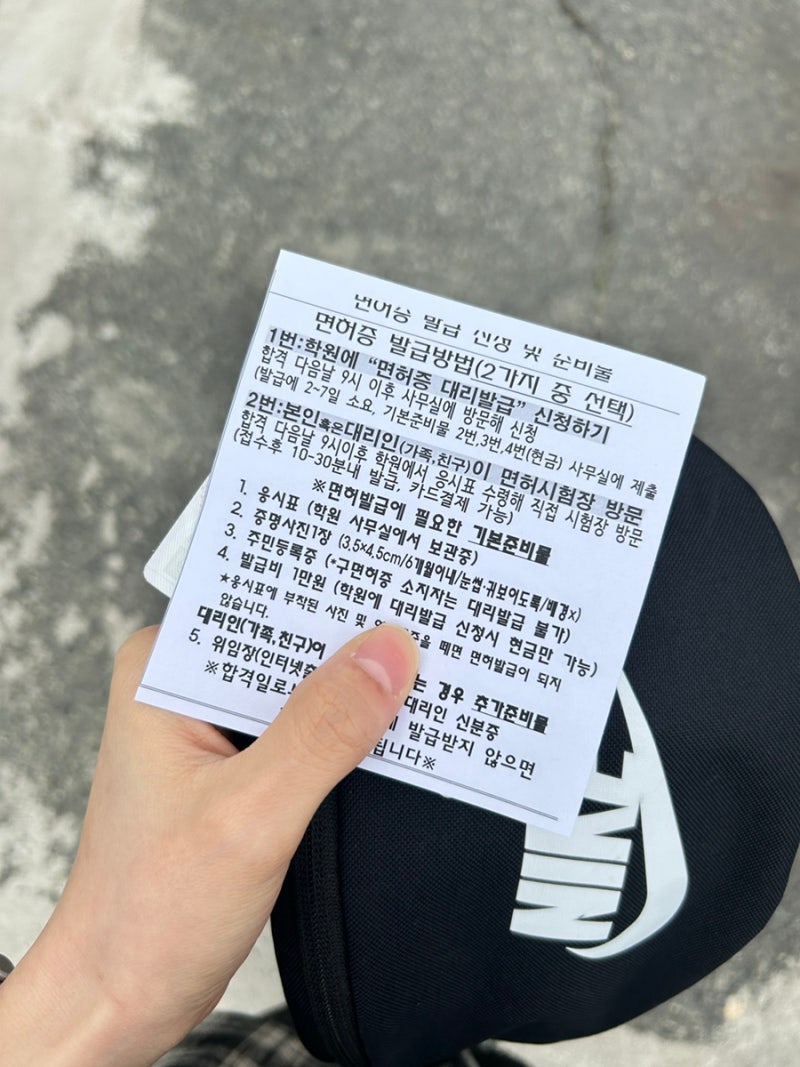 면허증 발급 신청 및 준비물
면허증 발급방법(2가지 중 선택)
1번:학원에 "면허증 대리발급" 신청하기
합격 다음날 9시 이후 사무실에 방문해 신청
(발급에 2~7일 소요, 기본준비물 2번,3번,4번(현금) 사무실에 제출
2번:본인혹은대리인(가족,친구)이 면허시험장 방문
합격 다음날 9시이후 학원에서 응시표 수령해 직접 시험장 방문
(접수후 10-30분내 발급, 카드결제 가능)
※면허발급에 필요한 기본준비물
1. 응시표 (학원 사무실에서 보관중)
2. 증명사진1장 (3.5×4.5cm/6개월이내/눈썹·귀보이도록/배경x)
3. 주민등록증 (*구면허증 소지자는 대리발급 불가)
4. 발급비 1만원 (학원에 대리발급 신청시 현금만 가능)
★응시표에 부착된 사진 및 을 떼면 면허발급이 되지
않습니다.
대리인(가족,친구)이 는 경우 추가준비물
5. 위임장(인터넷 대리인 신분증
※합격일로 발급받지 않으면
됩니다※
NIKE